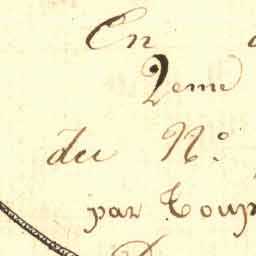 En
2eme
du N°.
par Toup